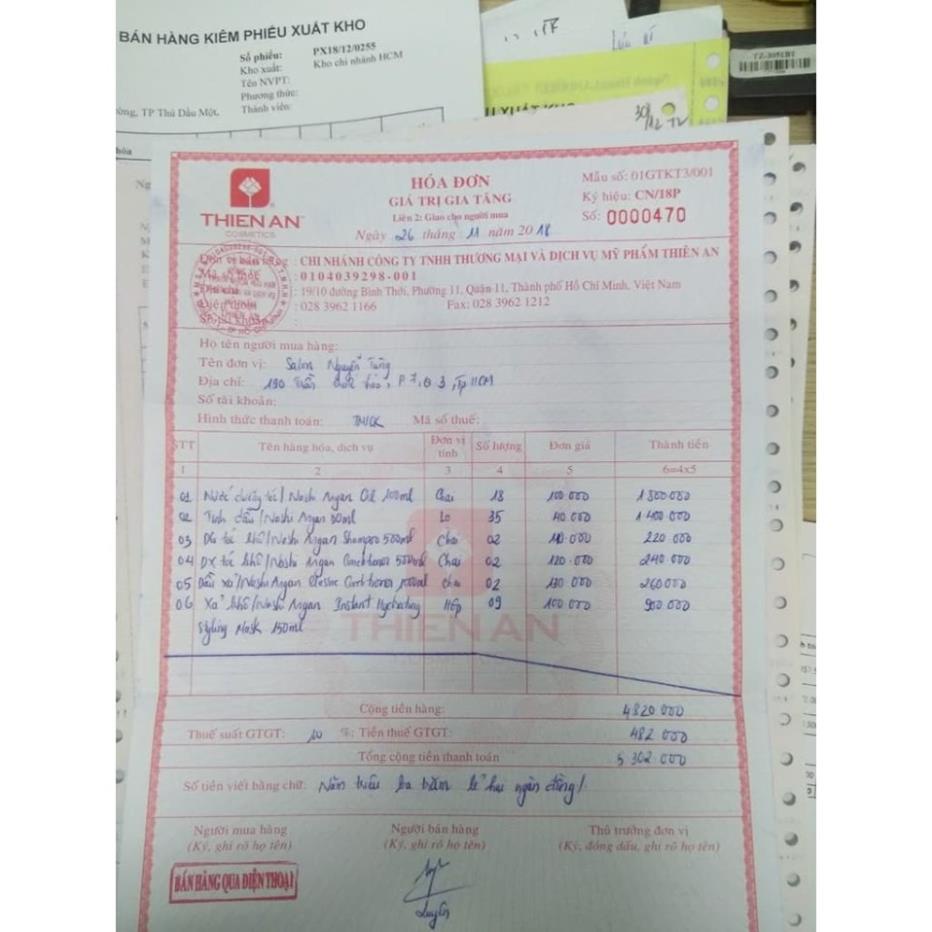 BÁN HÀNG KIÊM PHIẾU XUẤT KHO
Số phiếu: PX18/12/0255
Kho xuất: Kho chi nhánh HCM
Tên NVPT:
Phương thức:
Thành viên:
TP Thủ Dầu Một,
30/12 T2
THIEN AN
COSMETICS
HÓA ĐƠN
GIÁ TRỊ GIA TĂNG
Liên 2: Giao cho người mua
Ngày 26 tháng 11 năm 2018
Mẫu số: 01GTKT3/001
Ký hiệu: CN/18P
Số: 0000470
Đơn vị bán hàng : CHI NHÁNH CÔNG TY TNHH THƯƠNG MẠI VÀ DỊCH VỤ MỸ PHẨM THIÊN AN
Mã số thuế : 0104039298-001
Địa chỉ : 19/10 đường Bình Thới, Phường 11, Quận 11, Thành phố Hồ Chí Minh, Việt Nam
Điện thoại : 028 3962 1166 Fax: 028 3962 1212
Số tài khoản
Họ tên người mua hàng:
Tên đơn vị: Salon Nguyễn Tăng
Địa chỉ: 190 Trần , P 7, Q 3, Tp HCM
Số tài khoản:
Hình thức thanh toán: TM/CK Mã số thuế:
STT Tên hàng hóa, dịch vụ Đơn vị tính Số lượng Đơn giá Thành tiền
1 2 3 4 5 6=4x5
01 Nước dưỡng tóc/ Nashi Argan Oil 100ml Chai 18 100 000 1 800 000
02 Tinh dầu/ Nashi Argan 30ml Lọ 35 40.000 1 400 000
03 DG tóc khô/ Nashi Argan Shampoo 500ml Chai 02 110.000 220 000
04 DX tóc khô/ Nashi Argan Conditioner 500ml Chai 02 120.000 240 000
05 Dầu xả/ Nashi Argan Conditioner Chai 02 130 000 260 000
06 Xả khô/ Nashi Argan Instant Hydrating Hộp 09 100 000 900 000
Styling Mask 150ml
THIEN AN
Cộng tiền hàng: 4 820 000
Thuế suất GTGT: 10 %; Tiền thuế GTGT: 482 000
Tổng cộng tiền thanh toán 5 302 000
Số tiền viết bằng chữ: Năm triệu ba trăm lẻ hai ngàn đồng/
Người mua hàng Người bán hàng Thủ trưởng đơn vị
(Ký, ghi rõ họ tên) (Ký, ghi rõ họ tên) (Ký, đóng dấu, ghi rõ họ tên)
BÁN HÀNG QUA ĐIỆN THOẠI